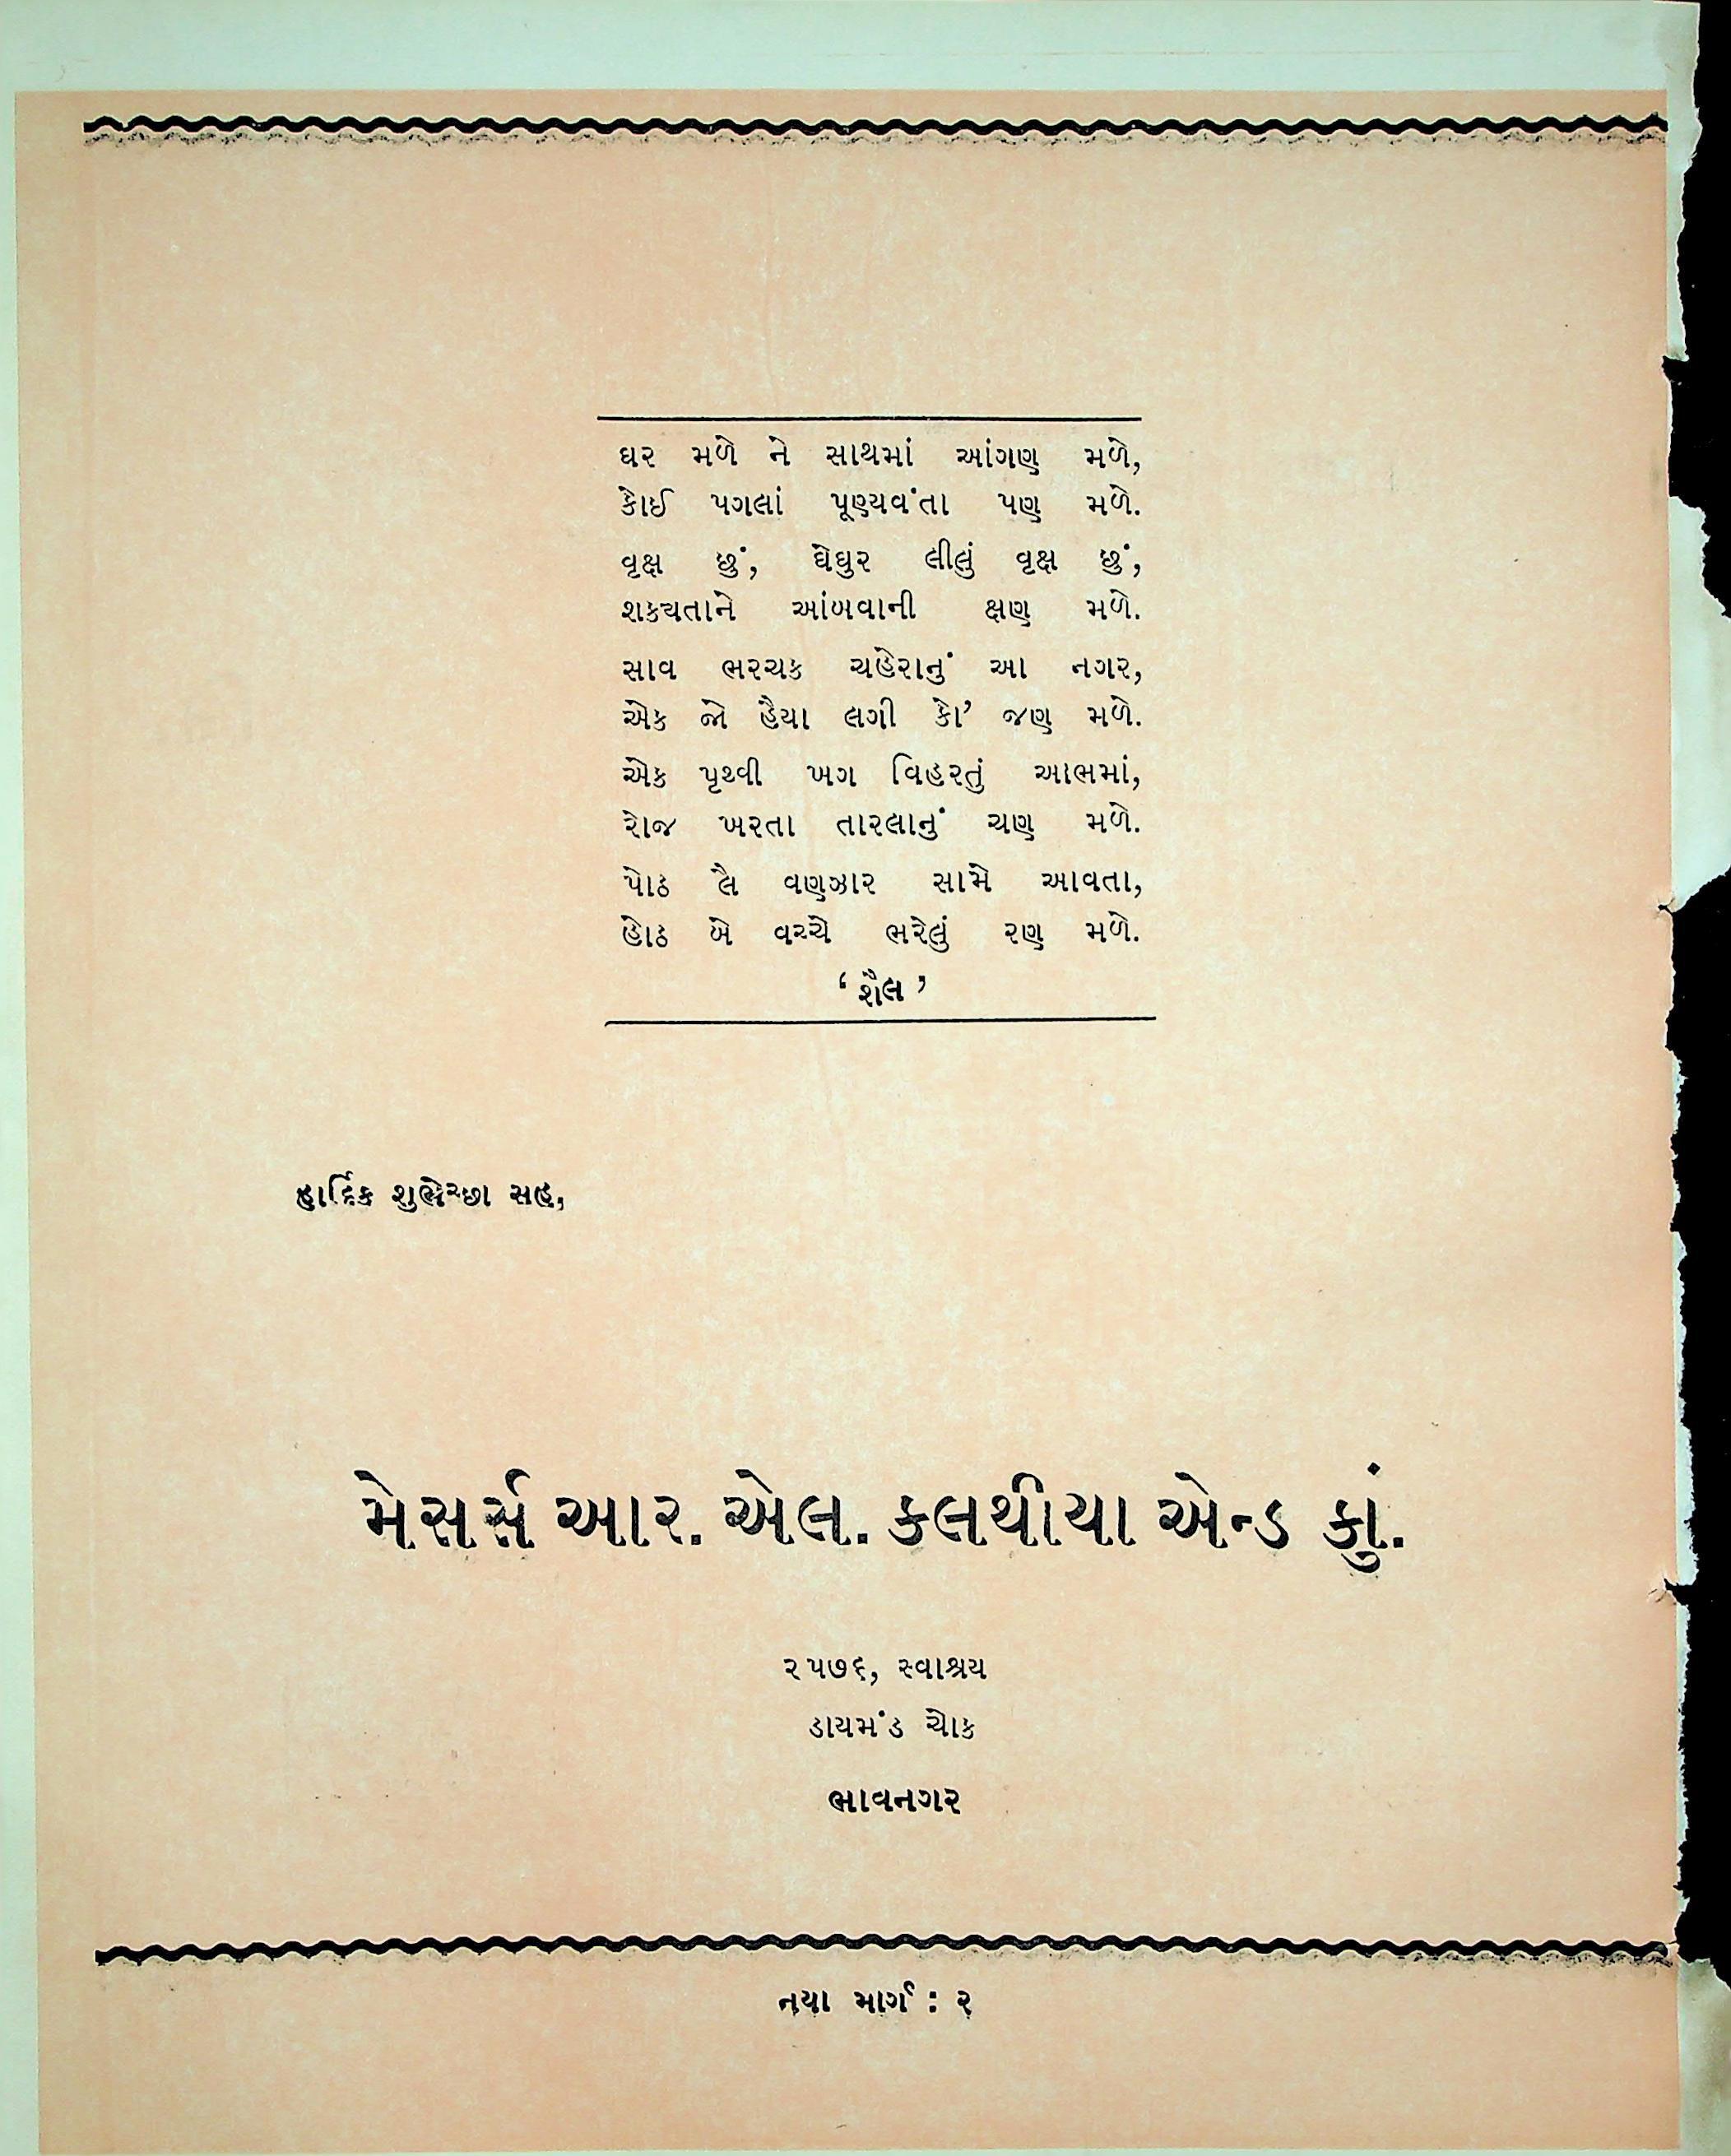 ઘર મળે ને સાથમાં આંગણ મળે,
કોઈ પગલાં પૂણ્યવંતા પણ મળે.
વૃક્ષ છું, ઘેઘુર લીલું વૃક્ષ છું,
શકયતાને આંબવાની ક્ષણ મળે.
સાવ ભરચક ચહેરાનું આ નગર,
એક જો હૈયા લગી કો’ જણ મળે.
એક પૃથ્વી ખગ વિહરતું આભમાં,
રોજ ખરતા તારલાનું ચણ મળે.
પોઠ લૈ વણઝાર સામે આવતા,
હોઠ બે વચ્ચે ભરેલું રણ મળે.
‘શૈલ’
હાર્દિક શુભેચ્છા સહ,
મેસર્સ આર. એલ. કલથીયા એન્ડ કું.
૨૫૭૬, સ્વાશ્રય
ડાયમંડ ચોક
ભાવનગર
નયા માર્ગ : ૨